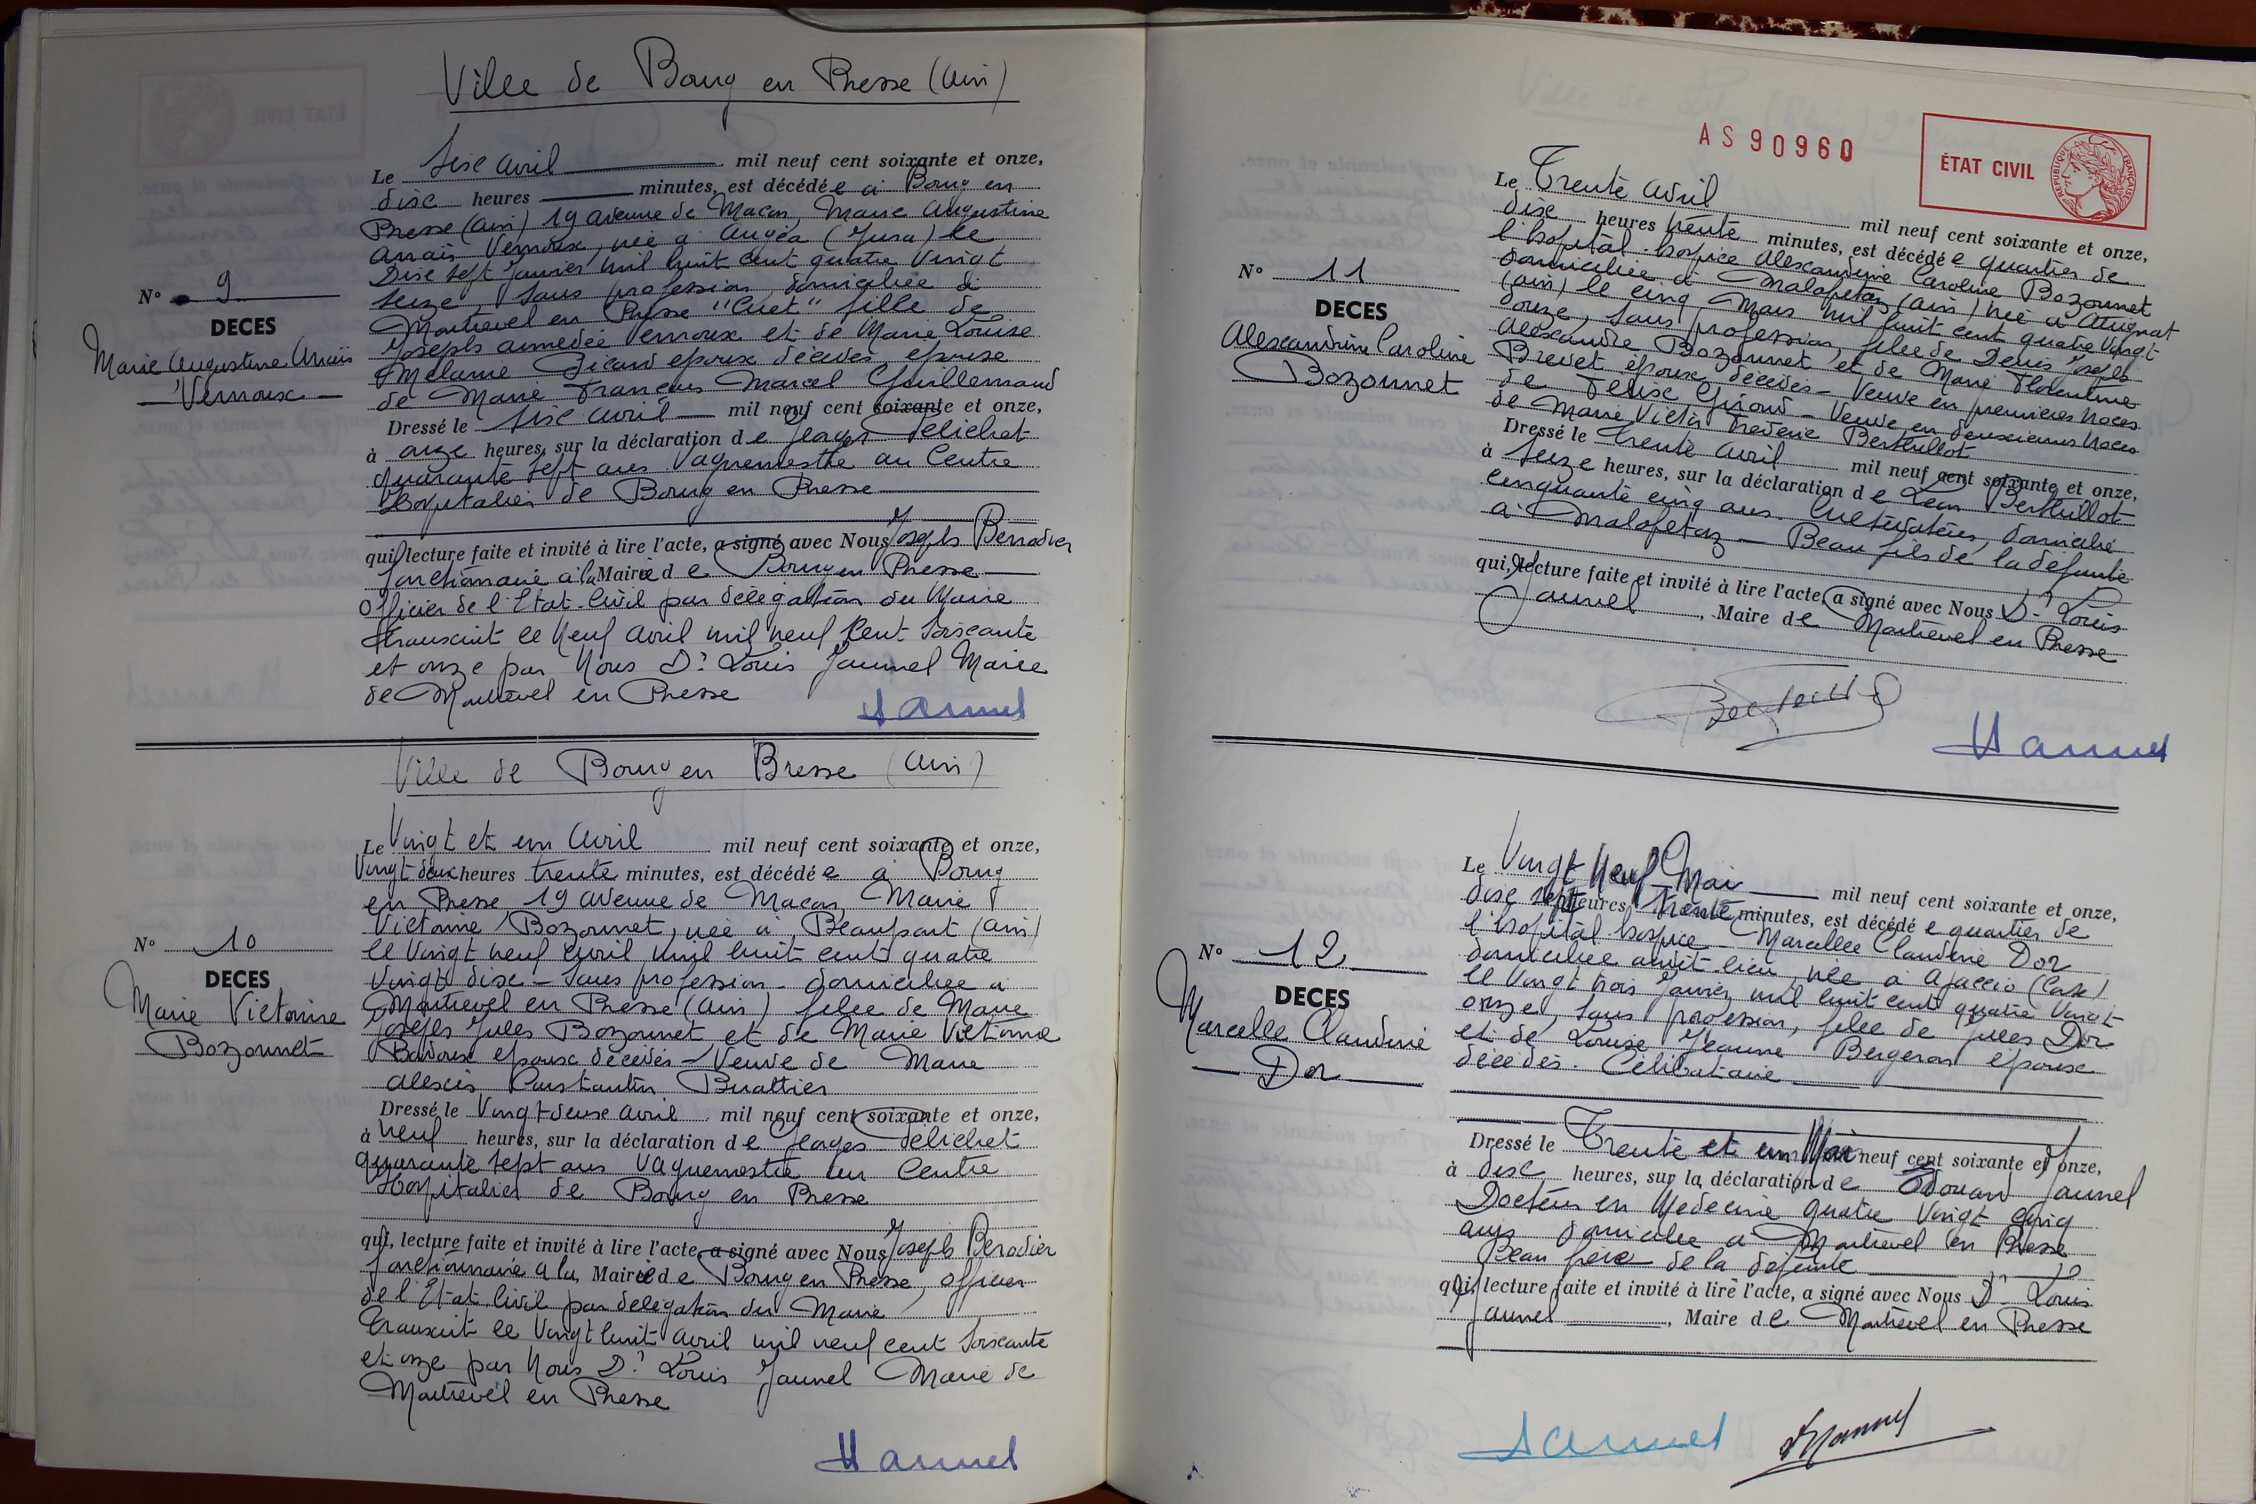 Ville de Bourg en Bresse (Ain)
Le Six avril mil neuf cent soixante et onze,
dix heures minutes, est décédée à Bourg en
Bresse (Ain) 19 avenue de Macon, Marie Augustine
Anaïs Vernoux, née à Augéa (Jura) le
Dix sept Janvier mil huit cent quatre Vingt
seize, sans profession, domiciliée à
Montrevel en Bresse "Cuet" fille de
Joseph amédée Vernoux et de Marie Louise
Mélanie époux décédés, épouse
de Marie François Marcel Guillermaud
N° 9
DECES
Marie Augustine Anaïs
Vernoux
Dressé le six avril mil neuf cent soixante et onze,
à onze heures, sur la déclaration de Georges Pelichet
quarante sept ans Vaguemestre au Centre
Hospitalier de Bourg en Bresse
qui, lecture faite et invité à lire l'acte, a signé avec Nous Joseph Berrodier
fonctionnaire à la Mairie de Bourg en Bresse
Officier de l'Etat-Civil par délégation du Maire
transcrit le Neuf avril mil neuf Cent Soixante
et onze par Nous Dr Louis Jaunel Maire
de Montrevel en Bresse
Jaunel
Ville de Bourg en Bresse (Ain)
Le Vingt et un avril mil neuf cent soixante et onze,
Vingt deux heures trente minutes, est décédée à Bourg
en Bresse 19 avenue de Macon, Marie
Victorine Bozonnet, née à Beaupont (Ain)
le Vingt neuf avril mil huit cent quatre
Vingt dix - Sans profession - domiciliée à
Montrevel en Bresse (Ain) fille de Marie
Joseph Jules Bozonnet et de Marie Victorine
époux décédés - Veuve de Marie
Alexis Constantin Buattier
N° 10
DECES
Marie Victorine
Bozonnet
Dressé le Vingt deux avril mil neuf cent soixante et onze,
à neuf heures, sur la déclaration de Georges Pelichet
quarante sept ans Vaguemestre au Centre
Hospitalier de Bourg en Bresse
qui, lecture faite et invité à lire l'acte, a signé avec Nous Joseph Berodier
fonctionnaire à la Mairie de Bourg en Bresse, officier
de l'Etat Civil par délégation du Maire
Transcrit le Vingt huit avril mil neuf cent Soixante
et onze par Nous Dr Louis Jaunel Maire de
Montrevel en Bresse
Jaunel
AS90960
ÉTAT CIVIL
RÉPUBLIQUE FRANÇAISE
Le Trente avril mil neuf cent soixante et onze,
dix heures trente minutes, est décédée quartier de
l'hopital-hospice Alexandrine Caroline Bozonnet
domiciliée à Malafretaz (Ain) née à Attignat
(Ain) le cinq Mars mil huit cent quatre Vingt
douze, sans profession, fille de Denis Joseph
Alexandre Bozonnet, et de Marie Florentine
Brevet époux décédés - Veuve en premières Noces
de Félix Giroud - Veuve en deuxièmes Noces
de Marie Victor Frédéric Berthillot
N° 11
DECES
Alexandrine Caroline
Bozonnet
Dressé le trente avril mil neuf cent soixante et onze,
à seize heures, sur la déclaration de Léon Berthillot
cinquante cinq ans. Cultivateur, domicilié
à Malafretaz - Beau fils de la défunte
qui, lecture faite et invité à lire l'acte, a signé avec Nous Dr Louis
Jaunel, Maire de Montrevel en Bresse
Jaunel
Le Vingt Neuf Mai mil neuf cent soixante et onze,
dix sept heures trente minutes, est décédée quartier de
l'hopital hospice - Marcelle Claudine Dor
domiciliée audit lieu, née à Ajaccio (Corse)
le Vingt trois Janvier mil huit cent quatre Vingt
onze, sans profession, fille de Jules Dor
et de Louise Jeanne Bergeron époux
décédés. Célibataire
N° 12
DECES
Marcelle Claudine
Dor
Dressé le Trente et un Mai neuf cent soixante et onze,
à dix heures, sur la déclaration de Edouard Jaunel
Docteur en Médecine quatre Vingt cinq
ans domicilié à Montrevel en Bresse
Beau frère de la défunte
qui, lecture faite et invité à lire l'acte, a signé avec Nous Dr Louis
Jaunel, Maire de Montrevel en Bresse
Jaunel
Jaunel